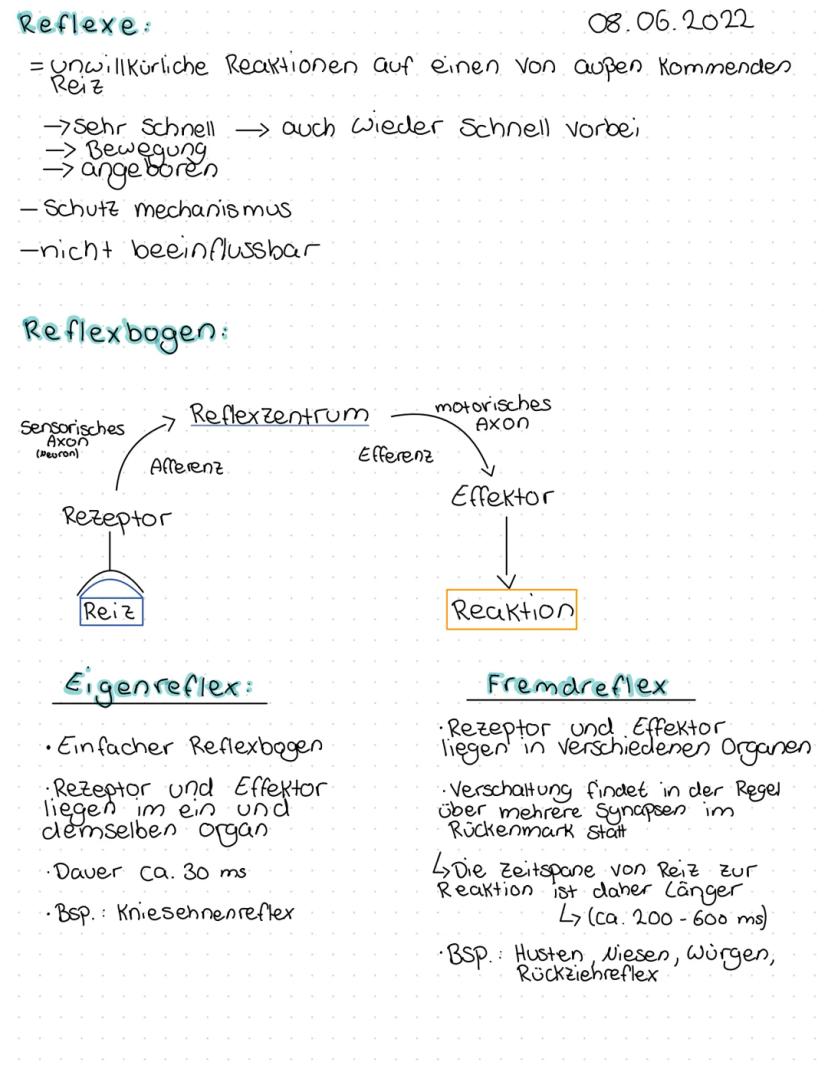 Reflexe:
08.06.2022
= unwillkürliche Reaktionen auf einen von außen kommenden
Reiz
→ sehr schnell → auch wieder schnell vorbei
→ Bewegung
→ angeboren
- Schutz mechanismus
- nicht beeinflussbar
Reflexbogen:
Sensorisches
Axon
(Neuron)
Afferenz
Reflexzentrum
Efferenz
motorisches
Axon
Rezeptor
Effektor
Reiz
Reaktion
Eigenreflex:
· Einfacher Reflexbogen
· Rezeptor und Effektor
liegen im ein und
demselben organ
· Dauer ca. 30 ms
· Bsp.: Kniesehnenreflex
Fremdreflex
· Rezeptor und Effektor
liegen in verschiedenen Organen
· Verschaltung findet in der Regel
über mehrere Synapsen im
Rückenmark statt
↳ Die Zeitspane von Reiz zur
Reaktion ist daher Länger
↳ (ca. 200 - 600 ms)
· BSP.: Husten, Niesen, Würgen,
Rückziehreflex